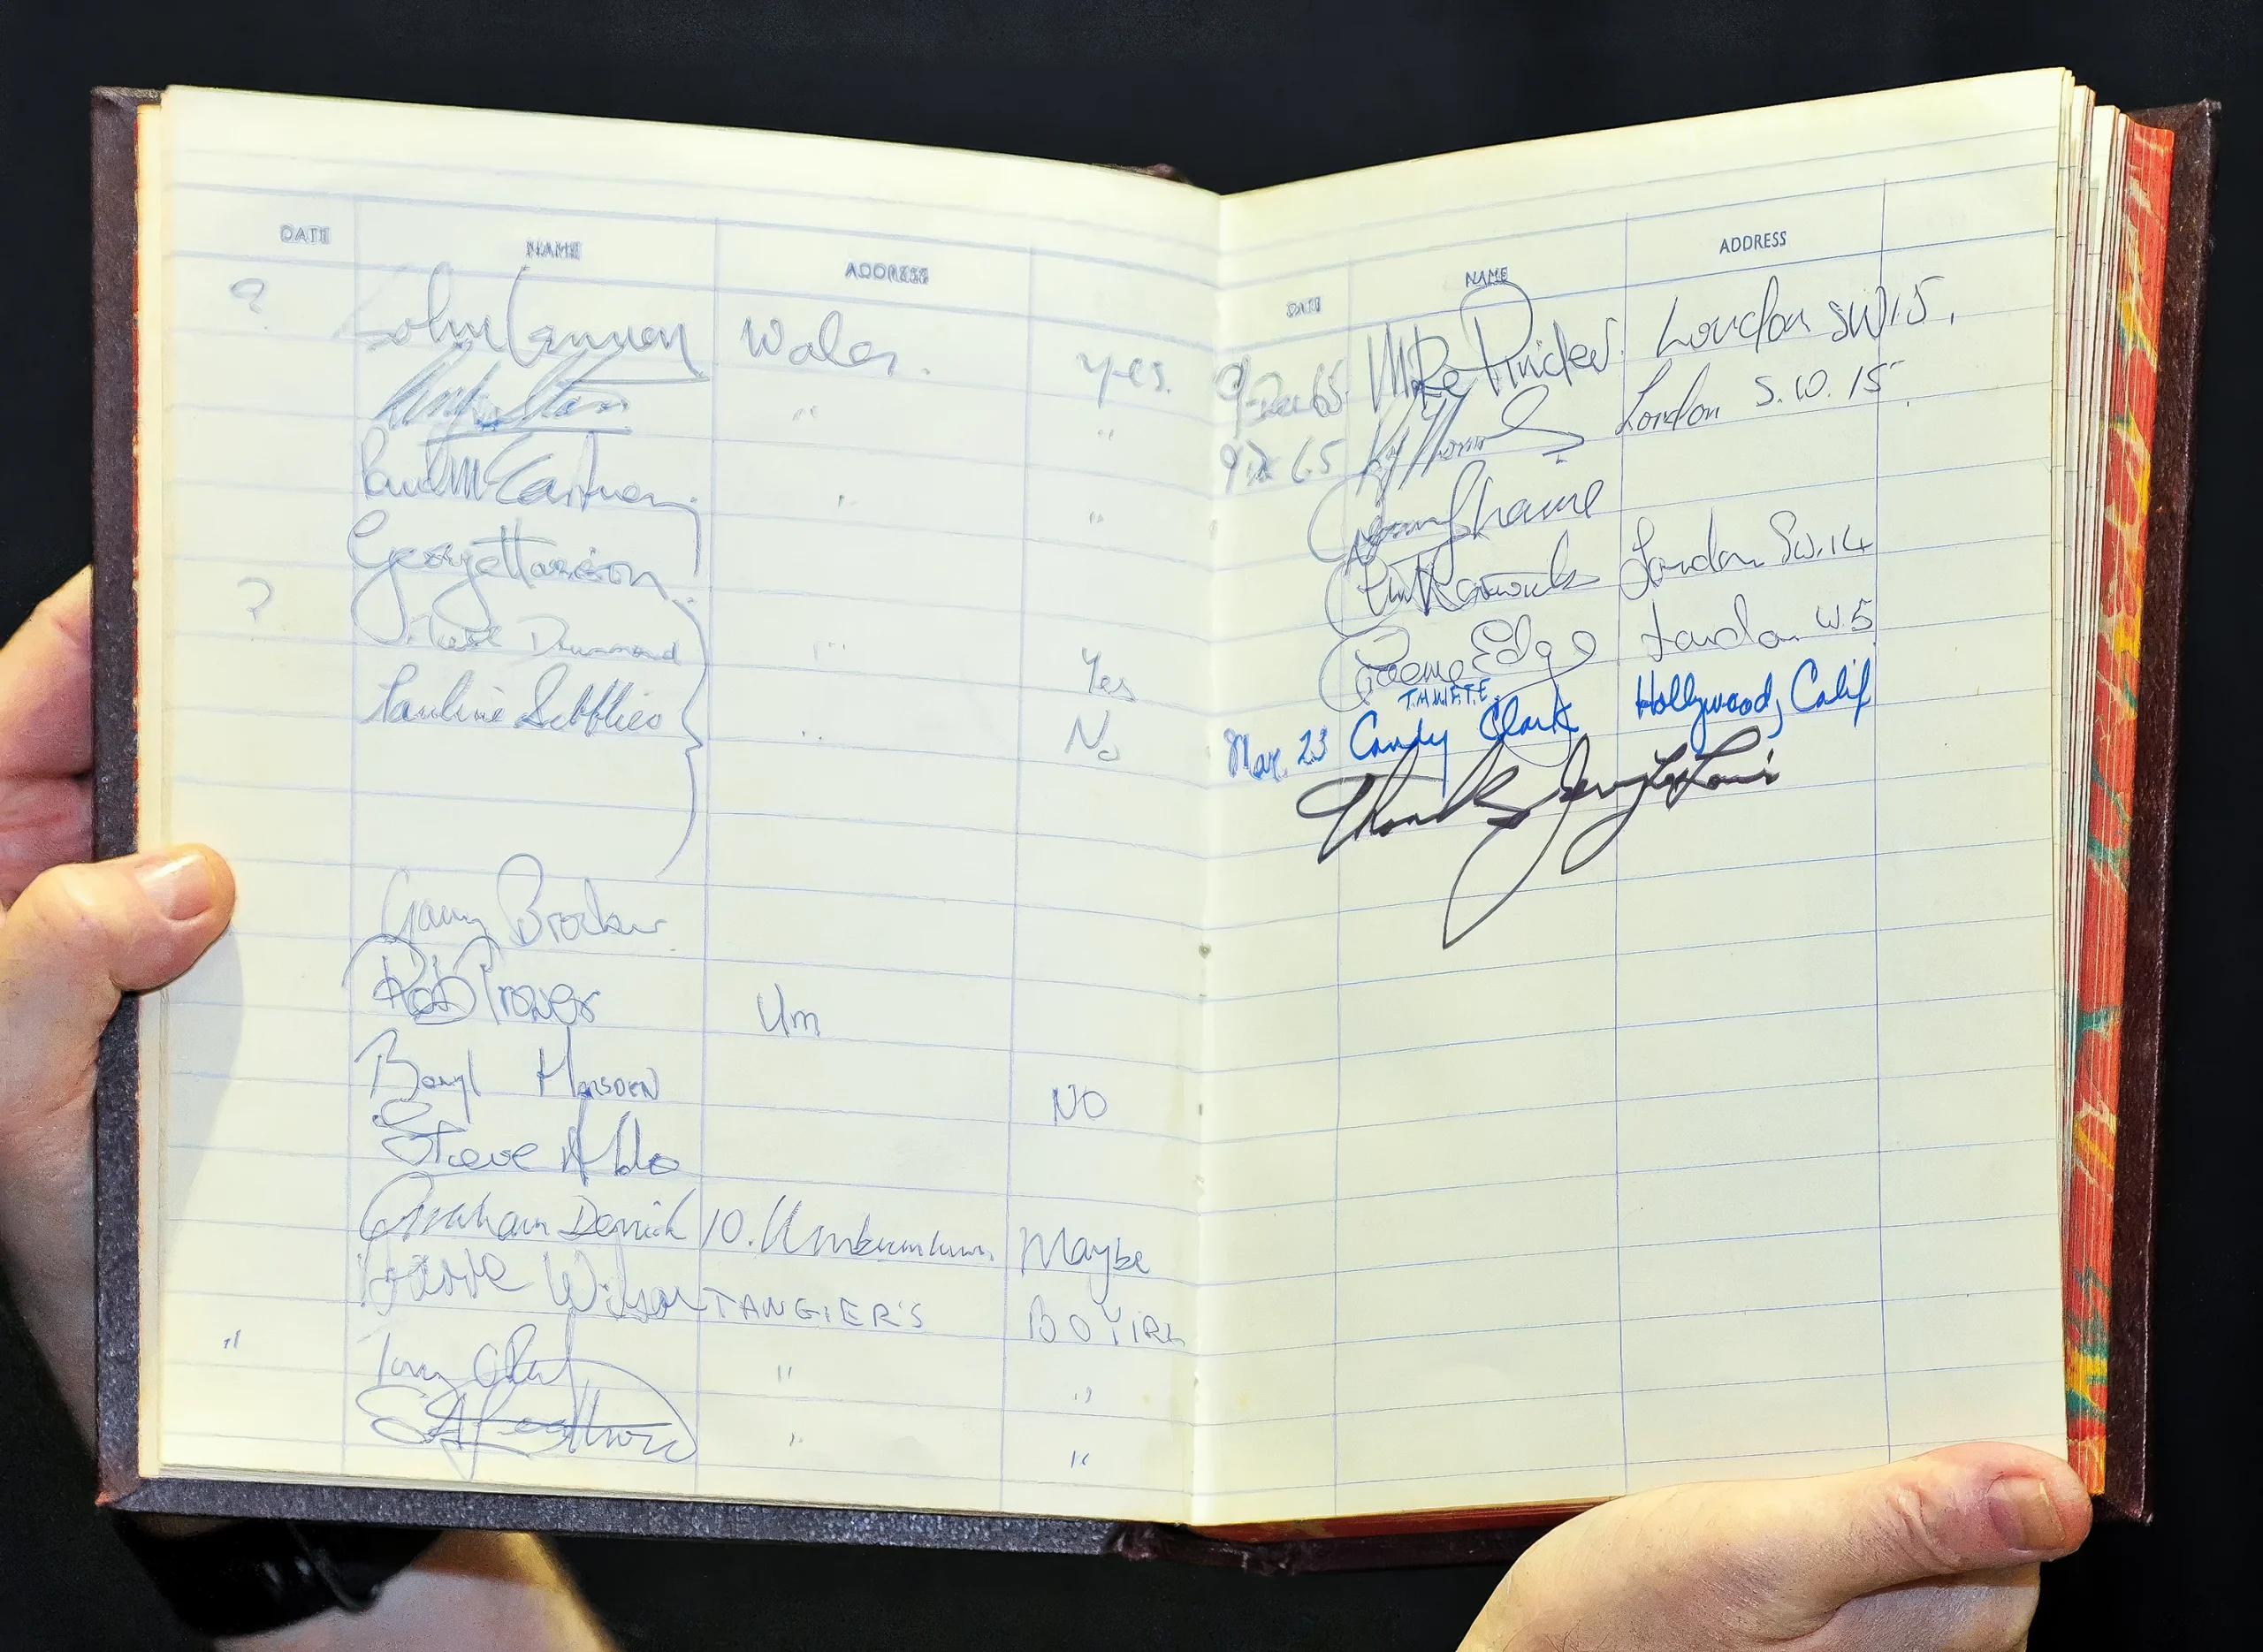 DATE NAME ADDRESS
? John Lennon Wales. yes.
Ringo Starr " "
Paul McCartney " "
George Harrison
? Drummond " Yes
Pauline " No
Gary Brooker
Rob Um
Beryl Marsden NO
Steve Aldo
Graham Derrick 10. Maybe
Wilson TANGIER'S
" Tony " "
" "
DATE NAME ADDRESS
9 Dec 65 Mike Pinder London SW15.
9 Dec 65 Ray Thomas London S.W.15.
Denny Laine
Clint Warwick London SW.14
Graeme Edge London W.5
T.M.W.F.T.E.
Mar. 23 Candy Clark Hollywood, Calif
Thanks Jerry Lee Lewis